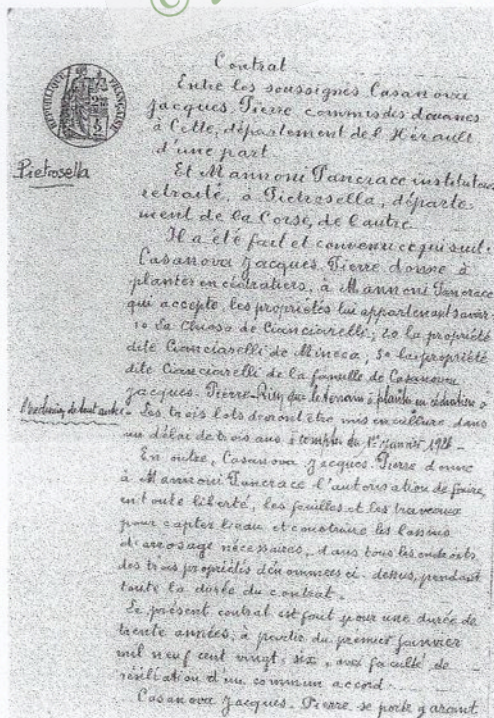 Contrat
Entre les soussignés Casanova
Jacques. Pierre commis des douanes
à Cette, département de l'Hérault
d'une part
Et Mannoni Pancrace instituteur
retraité, à Pietrosella, départe-
ment de la Corse, de l'autre
Il a été fait et convenu ce qui suit.
Casanova Jacques. Pierre donne à
planter en cédratiers, à Mannoni Pancrace
qui accepte, les propriétés lui appartenant savoir
1o La Chiosa de Cianciarelli; 2o la propriété
dite Cianciarelli de Mineca; 3o la propriété
dite Cianciarelli de la famille de Casanova
Jacques. Pierre que le terrain à planter en cédratiers
Les trois lots devront être mis en culture dans
un délai de trois ans à compter du 1er janvier 1926 -
En outre, Casanova Jacques. Pierre donne
à Mannoni Pancrace l'autorisation de faire,
en toute liberté, les fouilles et les travaux
pour capter l'eau et construire les bassins
d'arrosage nécessaires, dans tous les endroits
des trois propriétés dénommées ci-dessus, pendant
toute la durée du contrat.
Le présent contrat est fait pour une durée de
trente années, à partir du premier janvier
mil neuf cent vingt. six, avec faculté de
résiliation d'un commun accord.
Casanova Jacques. Pierre se porte garant
RÉPUBLIQUE FRANÇAISE
Pietrosella